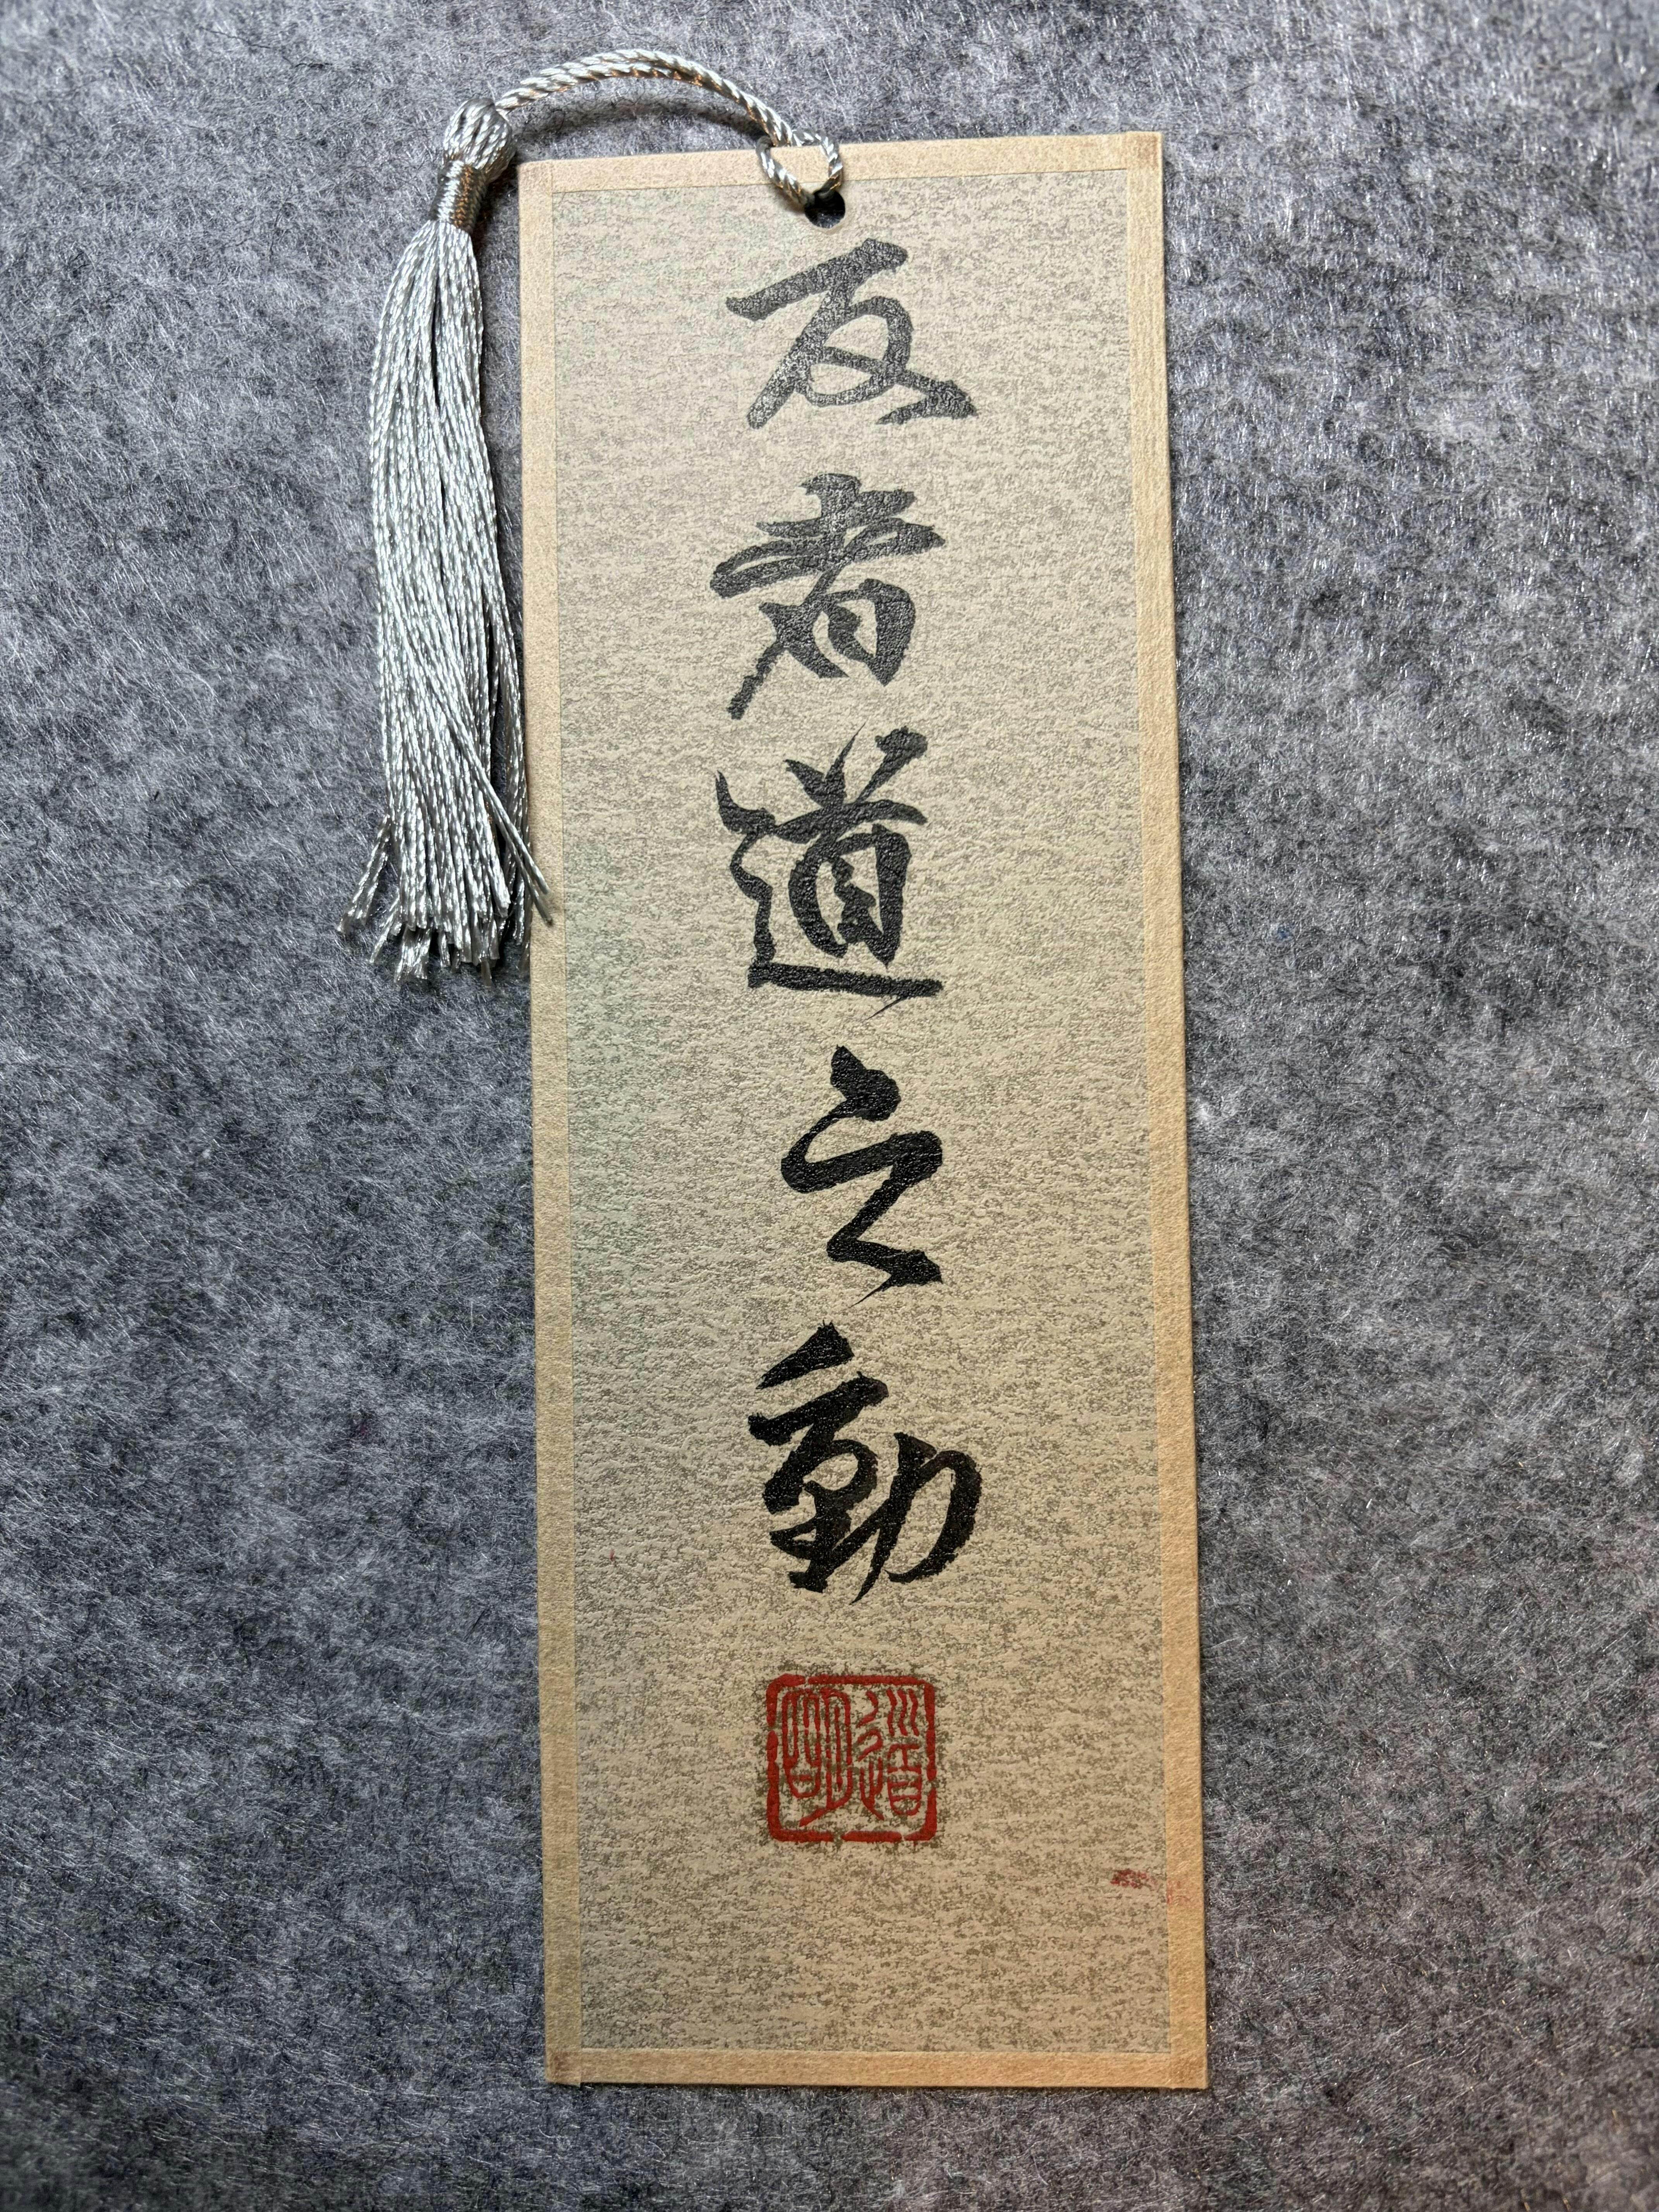 反者道之動